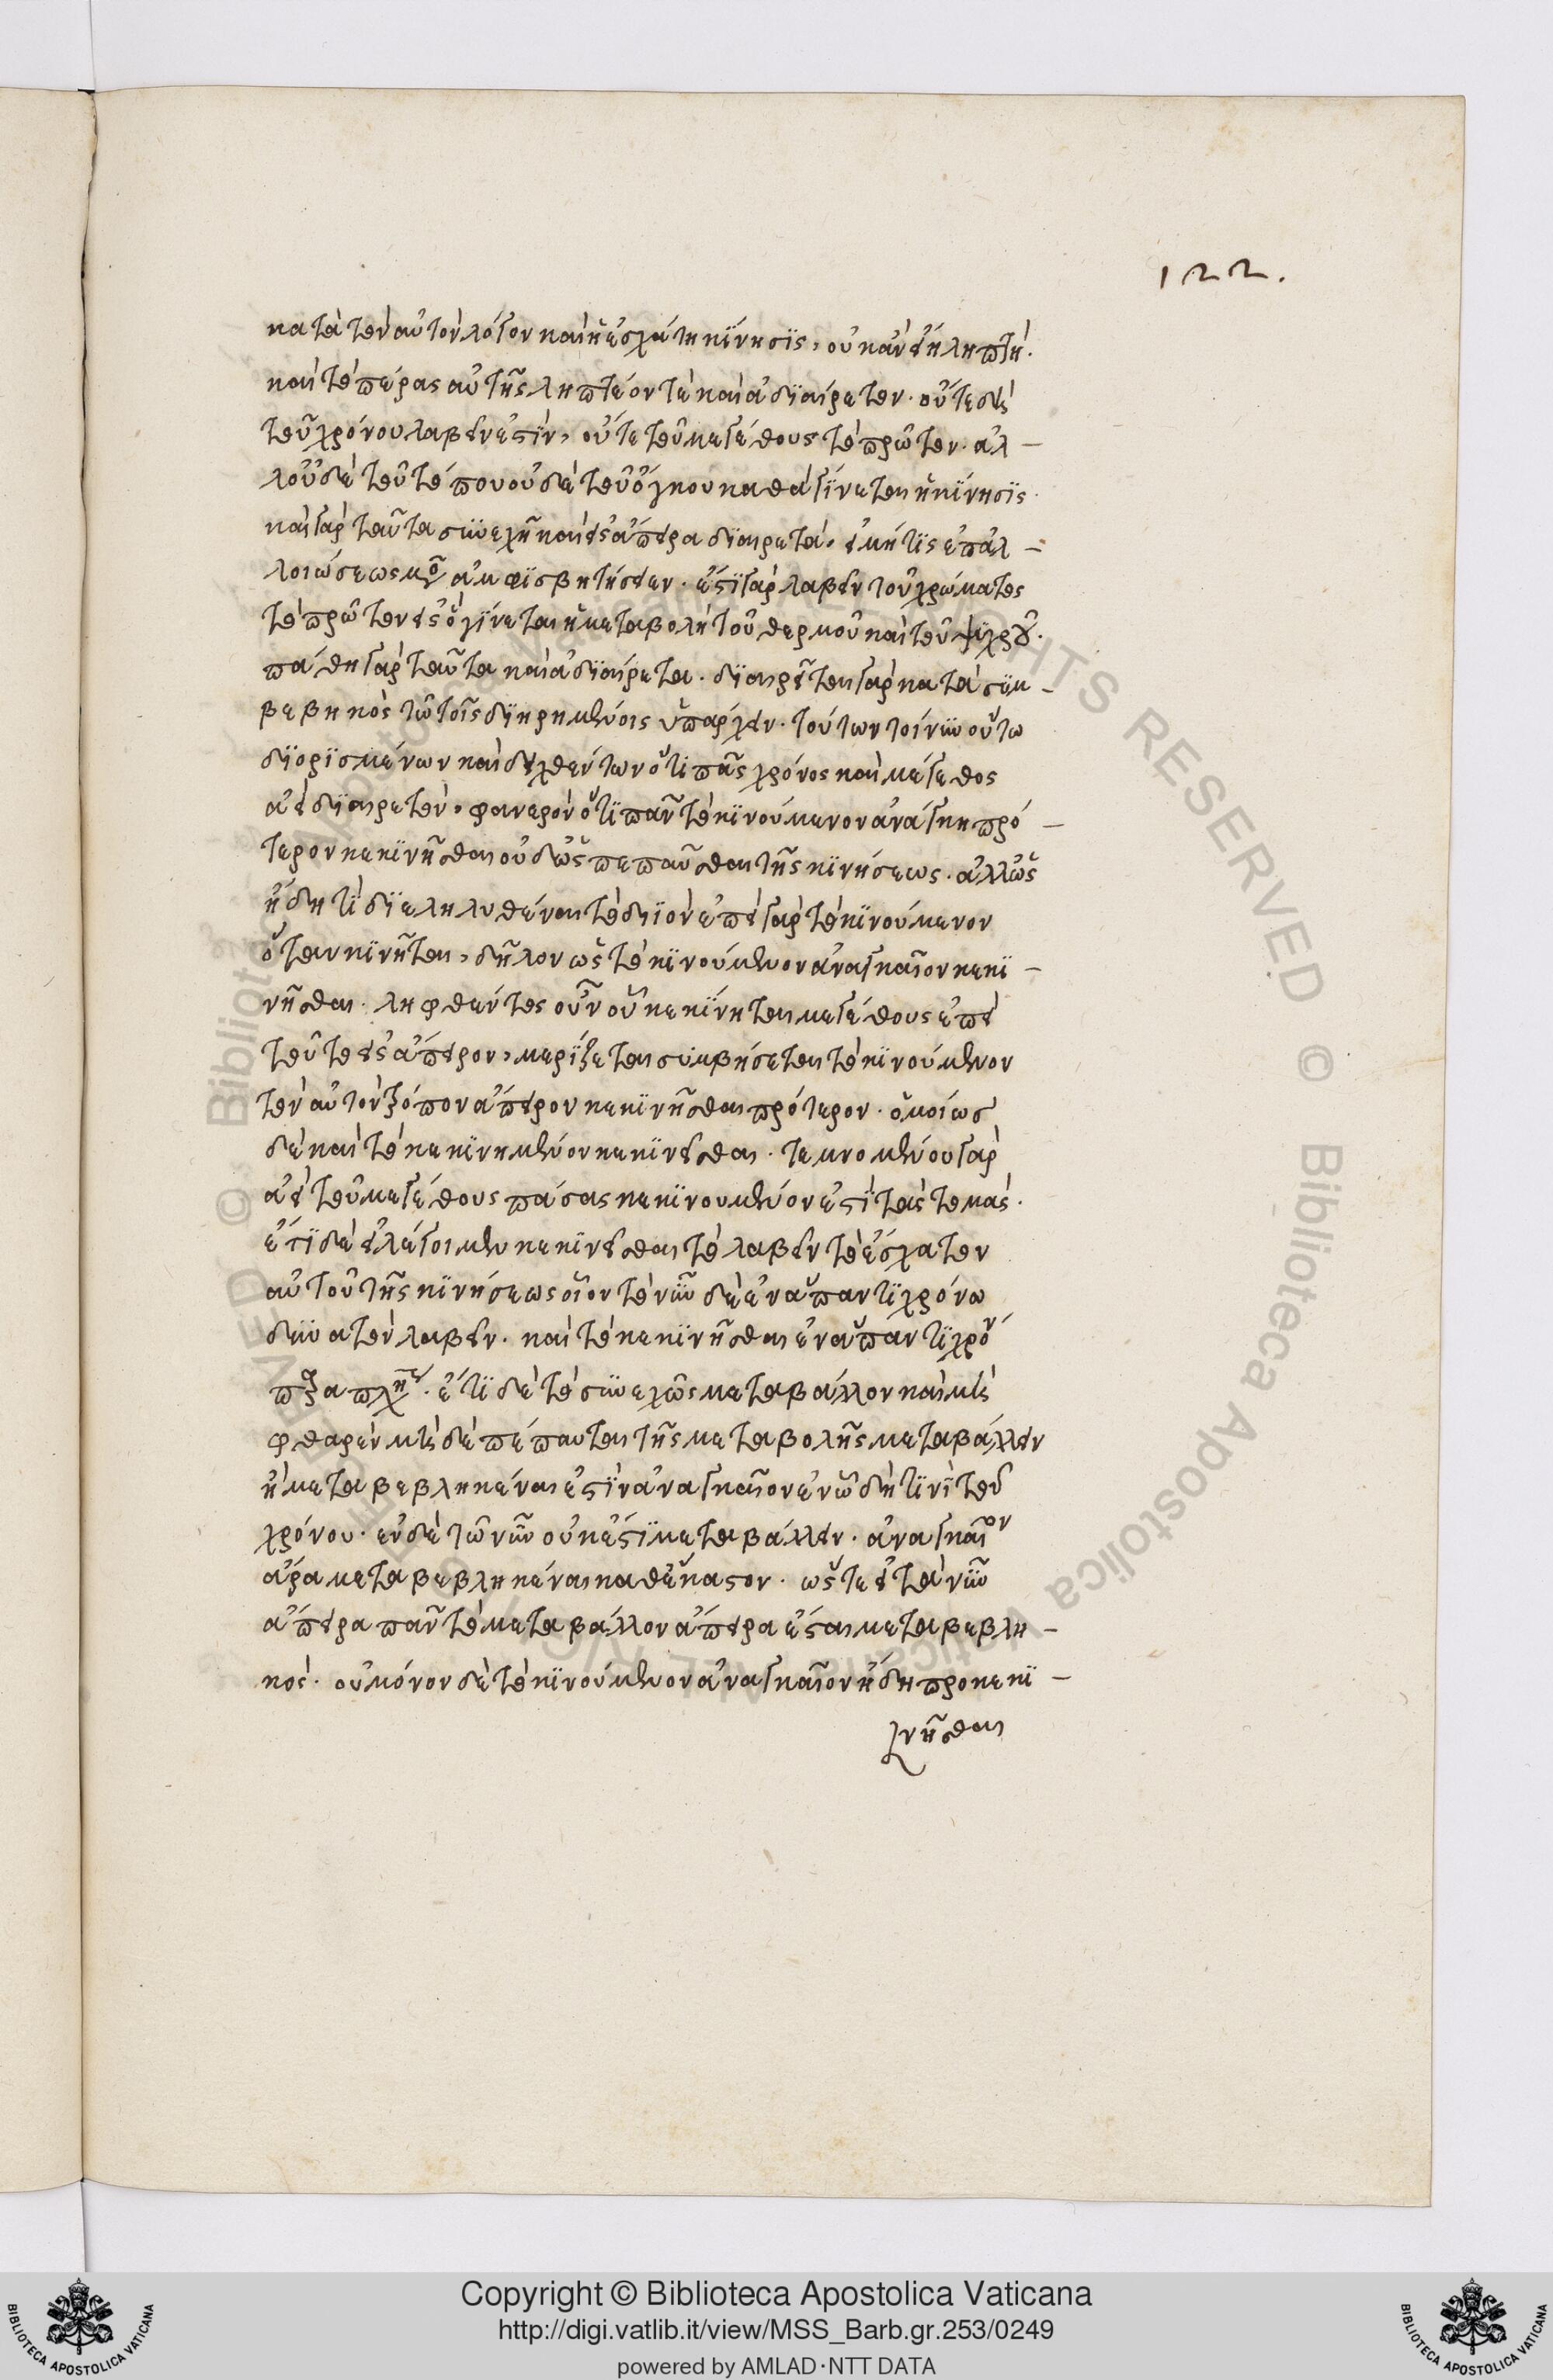 122.
κατὰ τὸν αὐτὸν λόγον καὶ ἡ ἐσχάτη κίνησις, οὐκ ἂν εἴη ληπτή.
καὶ τὸ πέρας αὐτῆς ληπτέον τὲ καὶ ἀδιαίρετον. οὔτε δὴ
τοῦ χρόνου λαβεῖν ἐστὶν, οὔτε τοῦ μεγέθους τὸ πρῶτον. ἀλ-
λ' οὐδὲ τοῦ τόπου οὐδὲ τοῦ ὄγκου καθὰ γίνεται ἡ κίνησις.
καὶ γὰρ ταῦτα συνεχῆ καὶ εἰς ἄπειρα διαιρετά. εἰ μή τις ἐπ' ἀλ-
λοιώσεως μόνον ἀμφισβητήσειεν. ἔστι γὰρ λαβεῖν τοῦ χρώματος
τὸ πρῶτον εἰς ὃ γίνεται ἡ μεταβολὴ τοῦ θερμοῦ καὶ τοῦ ψυχροῦ.
πάθη γὰρ ταῦτα καὶ ἀδιαίρετα. διαιρεῖται γὰρ κατὰ συμ-
βεβηκὸς τῶ τοῖς διηρημένοις ὑπάρχειν. τούτων τοίνυν οὕτω
διορισμένων καὶ δειχθέντων ὅτι πᾶς χρόνος καὶ μέγεθος
ἀεὶ διαιρετὸν, φανερὸν ὅτι πᾶν τὸ κινούμενον ἀνάγκη πρό-
τερον κεκινῆσθαι οὐδ' ὡς πεπαῦσθαι τῆς κινήσεως. ἀλλ' ὡς
ἤδη τὶ διεληλυθέναι τὸ διϊὸν ἐπεὶ γὰρ τὸ κινούμενον
ὅταν κινῆται, δῆλον ὡς τὸ κινούμενον ἀναγκαῖον κεκι-
νῆσθαι. ληφθέντος οὖν οὗ κεκίνηται μεγέθους ἐπεὶ
τοῦτο εἰς ἄπειρον, μερίζεται συμβήσεται τὸ κινούμενον
τὸν αὐτὸν τρόπον ἄπειρον κεκινῆσθαι πρότερον. ὁμοίως
δὲ καὶ τὸ κεκινημένον κεκινεῖσθαι. τεμνομένου γὰρ
ἀεὶ τοῦ μεγέθους πάσας κεκινουμένον ἐστὶ τὰς τομάς.
ἔτι δὲ εἰ λέγοιμεν κεκινεῖσθαι τὸ λαβεῖν τὸ ἔσχατον
αὐτοῦ τῆς κινήσεως οἷον τὸ νῦν δὲ ἐν ἅπαντι χρόνω
δυνατὸν λαβεῖν. καὶ τὸ κεκινῆσθαι ἐν ἅπαντι χρόνῳ
ἔτι δὲ τὸ συνεχῶς μεταβάλλον καὶ μὴ
φθαρὲν μὴ δὲ πέπαυται τῆς μεταβολῆς μεταβάλλειν
ἢ μεταβεβληκέναι ἐστὶν ἀναγκαῖον ἐν ᾧ δή τινι τοῦ
χρόνου. ἐν δὲ τῶ νῦν οὐκ ἔστι μεταβάλλειν. ἀναγκαῖον
ἄρα μεταβεβληκέναι καθ' ἕκαστον. ὥστε εἰ τὰ νῦν
ἄπειρα πᾶν τὸ μεταβάλλον ἄπειρα ἔσται μεταβεβλη-
κός. οὐ μόνον δὲ τὸ κινούμενον ἀναγκαῖον ἤδη προκεκι-
νῆσθαι
Copyright © Biblioteca Apostolica Vaticana
http://digi.vatlib.it/view/MSS_Barb.gr.253/0249
powered by AMLAD·NTT DATA
BIBLIOTECA APOSTOLICA VATICANA
BIBLIOTECA APOSTOLICA VATICANA